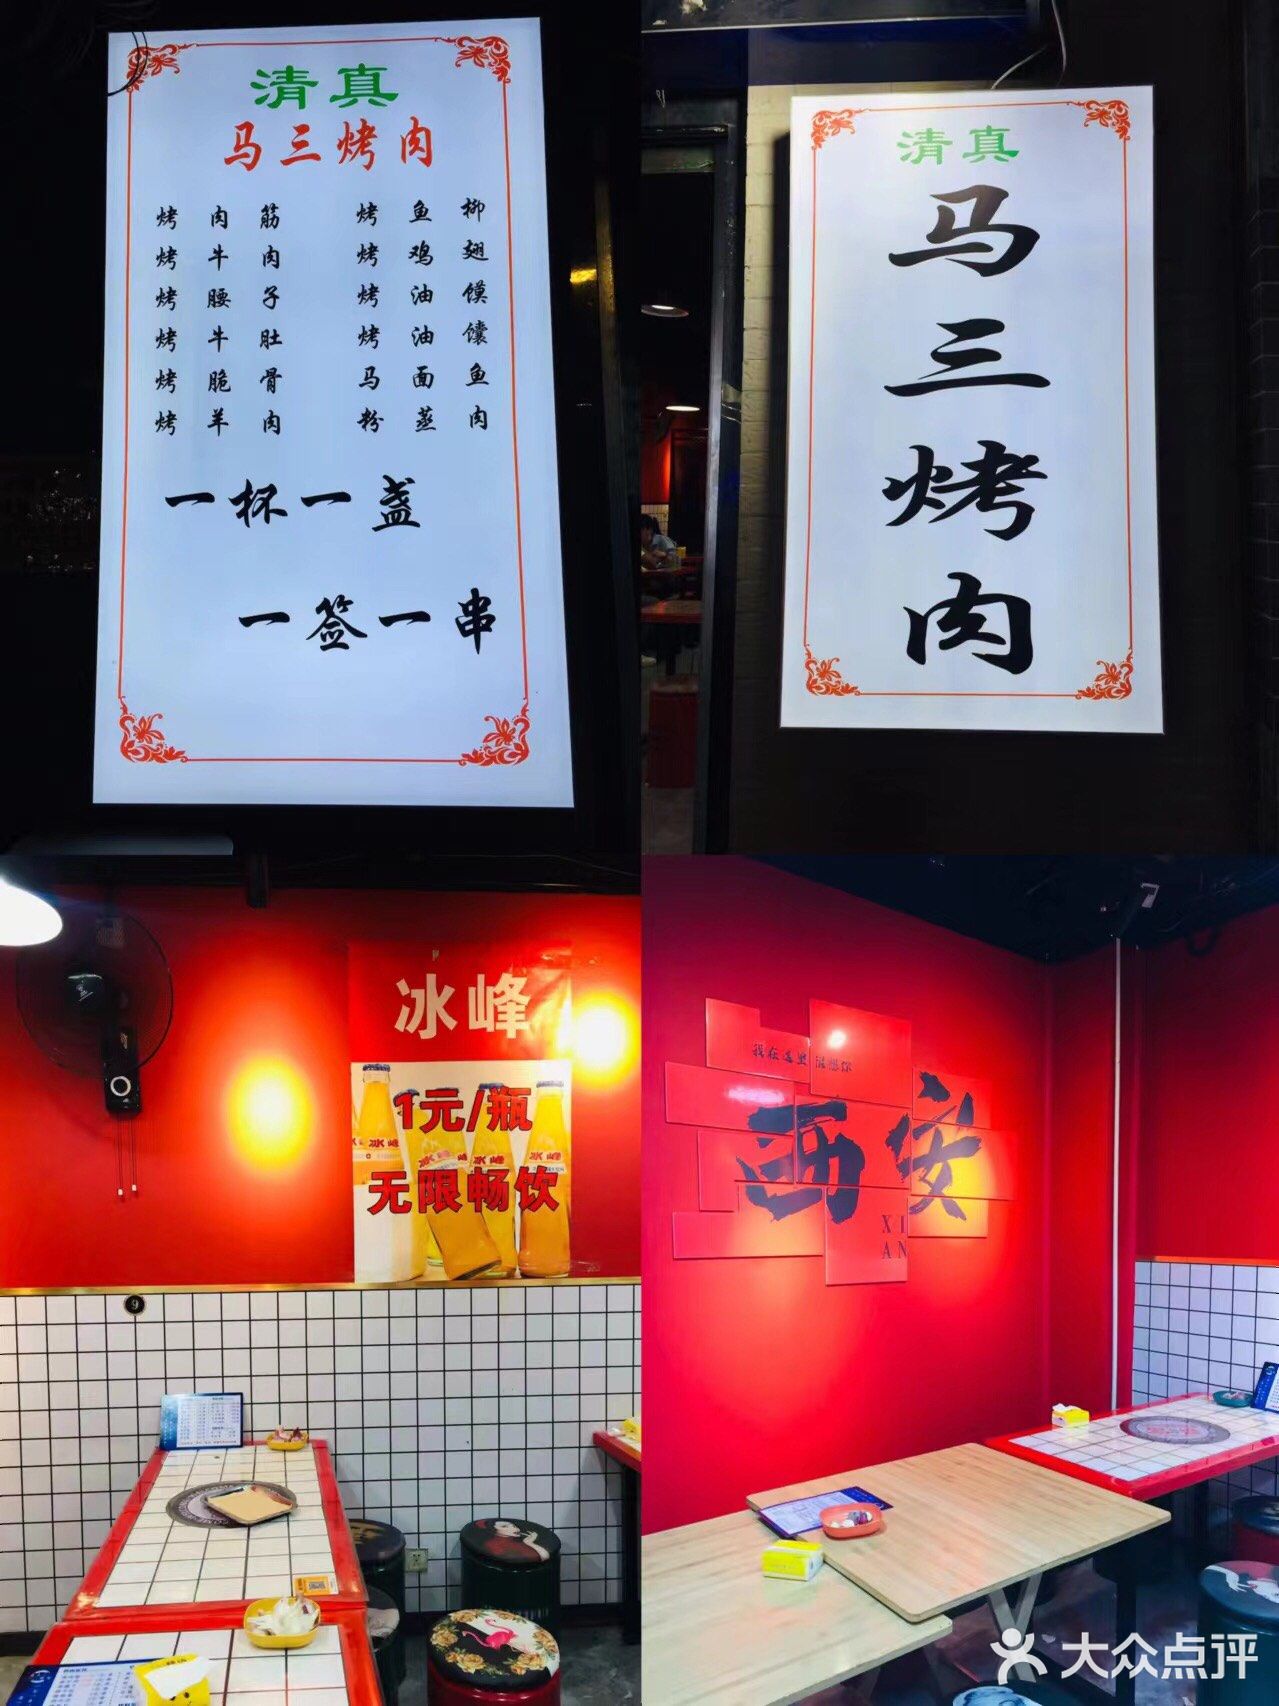 清真
马三烤肉
烤肉筋 烤鱼柳
烤牛肉 烤鸡翅
烤腰子 烤油馍
烤牛肚 烤油馕
烤脆骨 马面鱼
烤羊肉 粉蒸肉
一杯一盏
一签一串
清真
马三烤肉
冰峰
1元/瓶
冰峰
冰峰
冰峰
无限畅饮
9
我在这里很想你
西安
XI
AN
大众点评